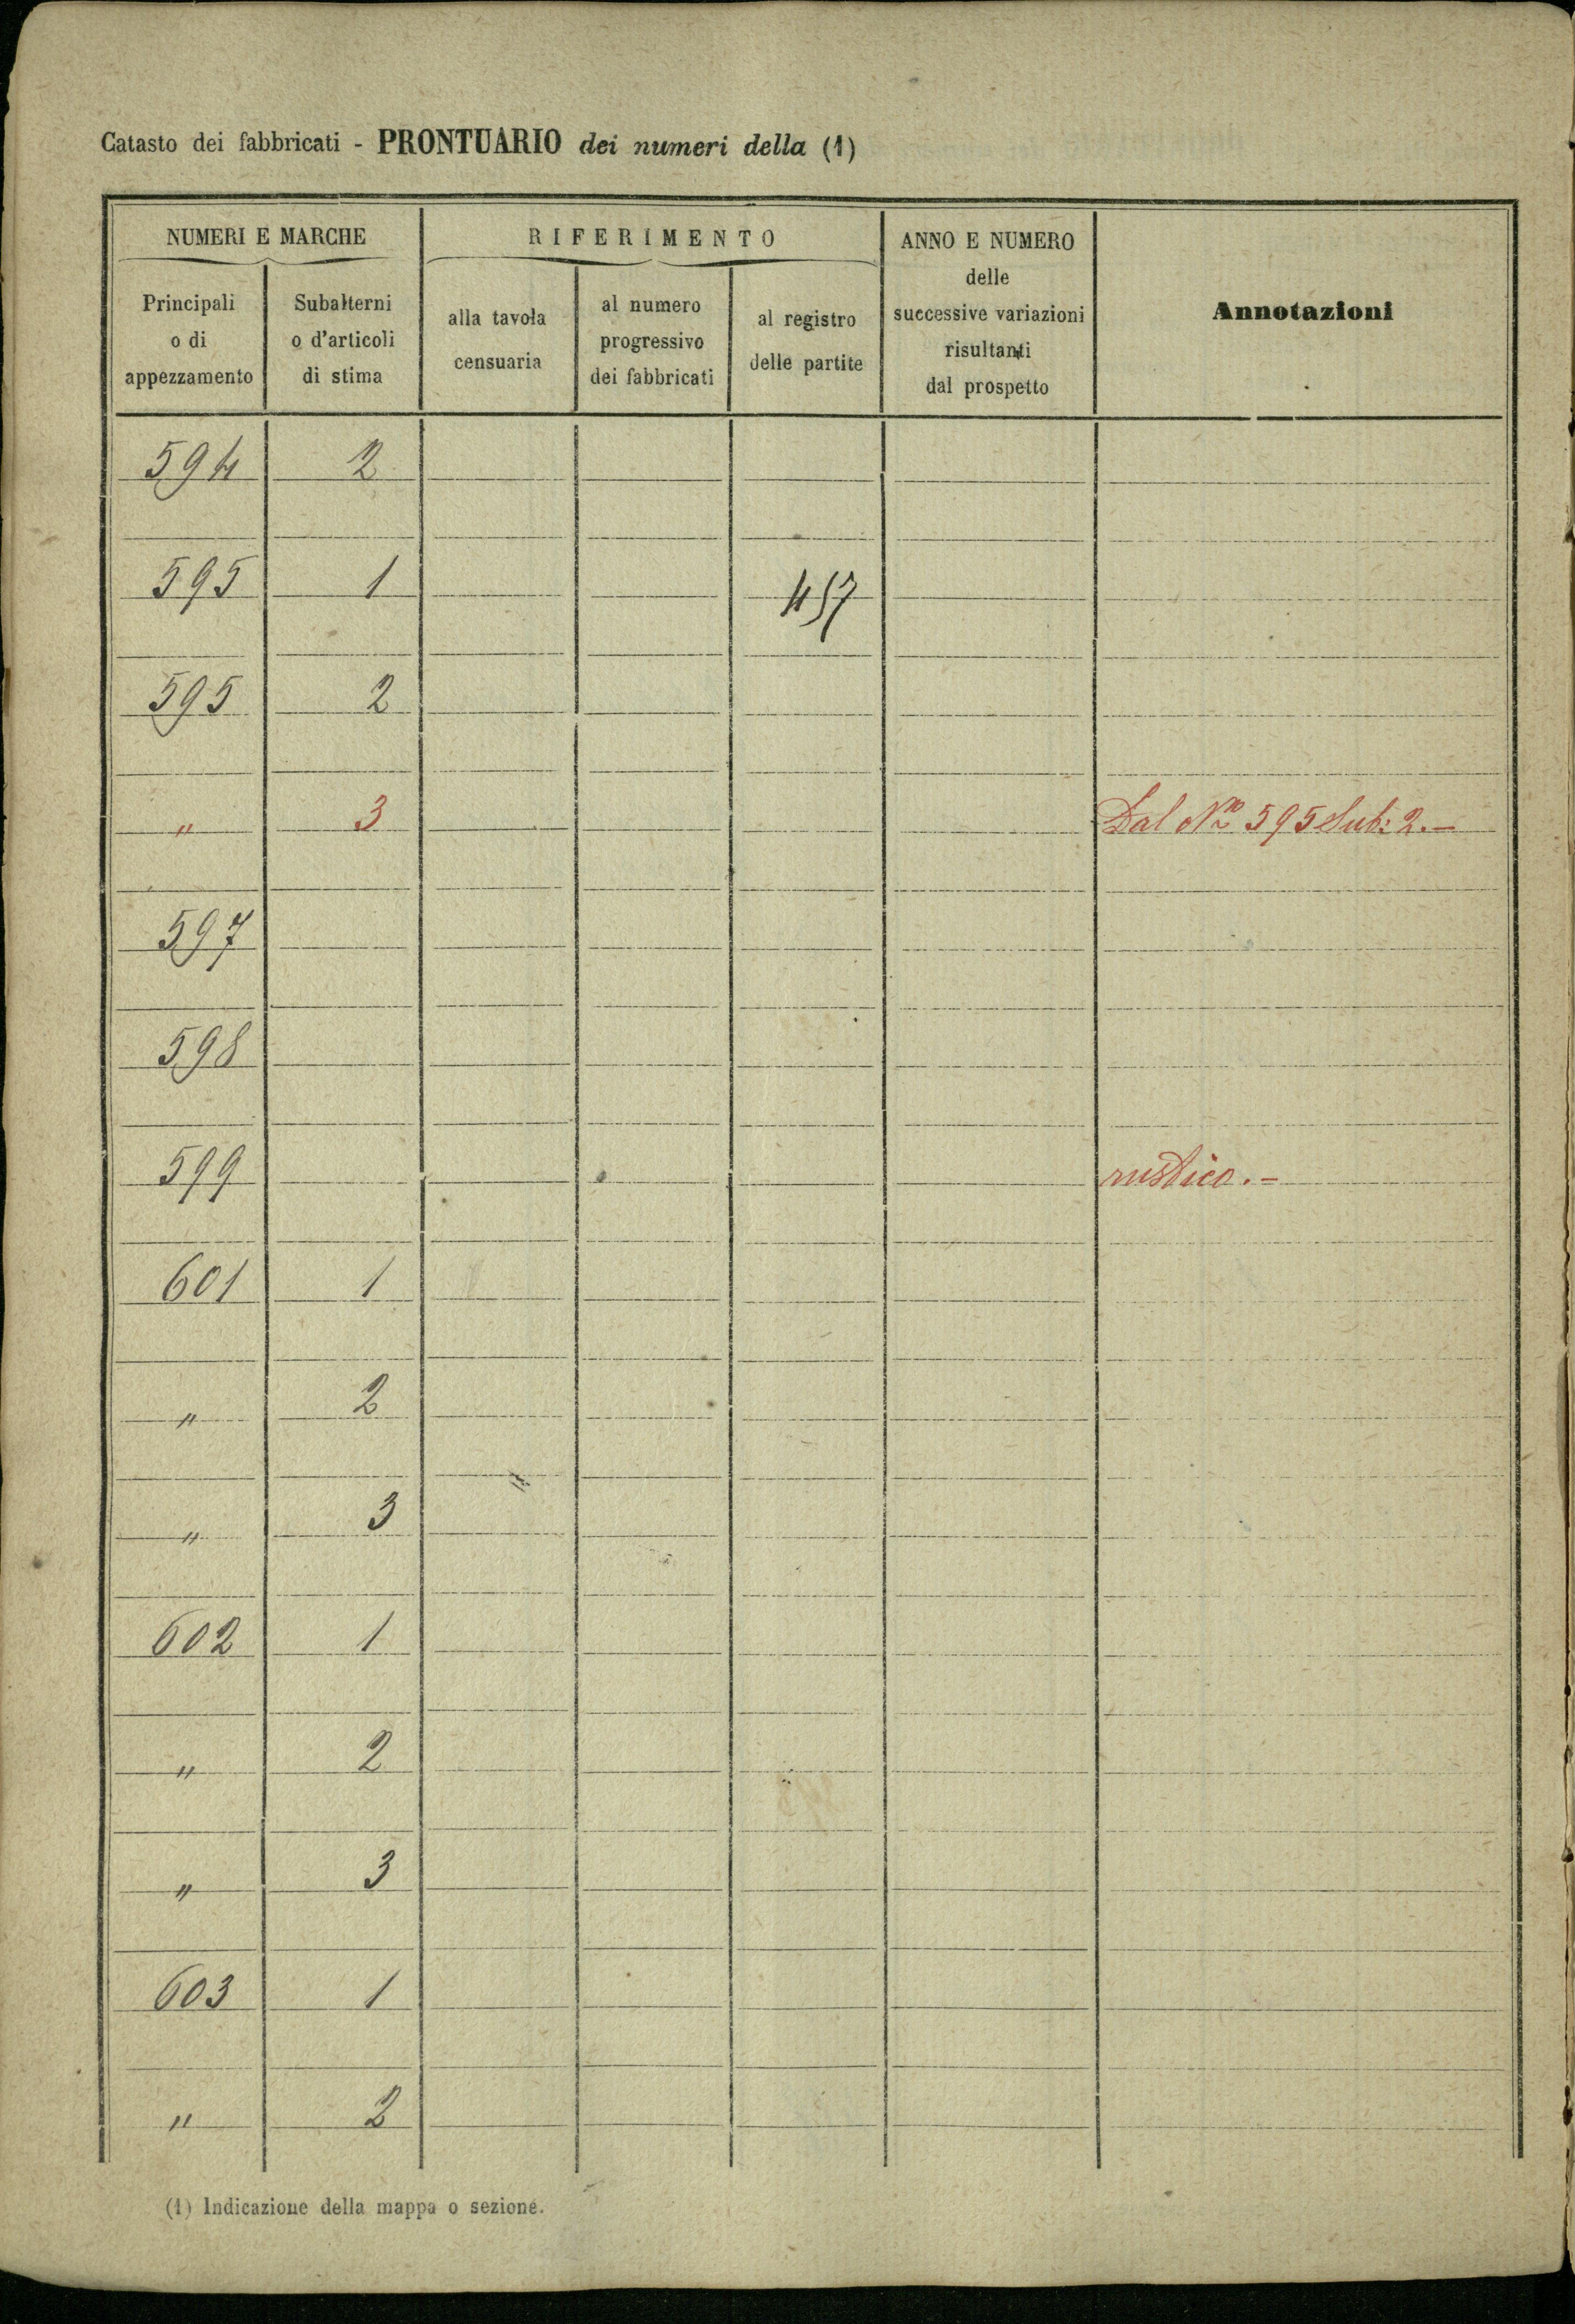 Catasto dei fabbricati - PRONTUARIO dei numeri della (1)
NUMERI E MARCHE
RIFERIMENTO
ANNO E NUMERO
delle
successive variazioni
risultanti
dal prospetto
Annotazioni
Principali
o di
appezzamento
Subalterni
o d'articoli
di stima
alla tavola
censuaria
al numero
progressivo
dei fabbricati
al registro
delle partite
594 2
595 1 457
595 2
" 3 Dal No 595 Sub: 2.-
597
598
599 rustico.-
601 1
" 2
" 3
602 1
" 2
" 3
603 1
" 2
(1) Indicazione della mappa o sezione.